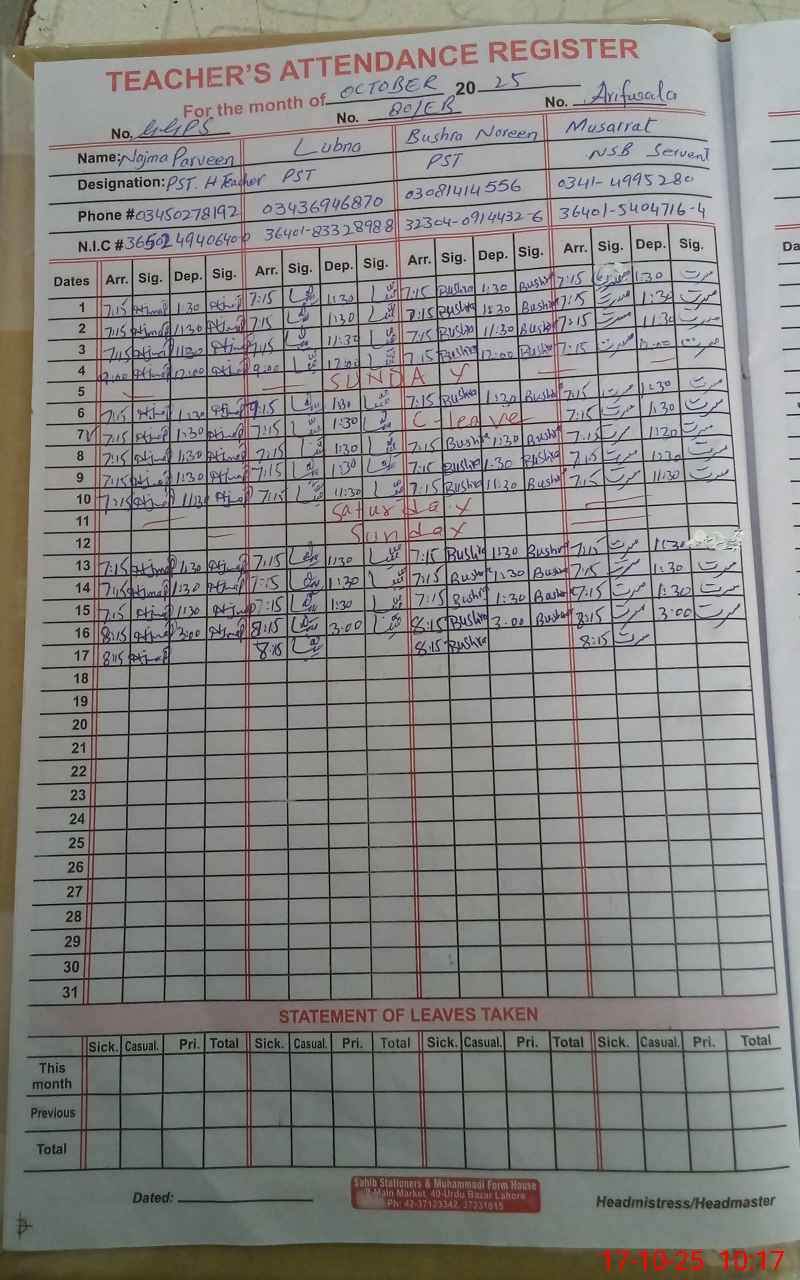 TEACHER'S ATTENDANCE REGISTER
For the month of OCTOBER 2025
No. GGPS No. 80/EB No. Arifwala
Name: Najma Parveen Lubna Bushra Noreen Musarrat
Designation: PST. H Teacher PST PST NSB Servent
Phone # 03450278192 03436946870 03081414556 0341-4995280
N.I.C # 36401-83328988 32304-0914432-6 36401-5404716-4
Dates Arr. Sig. Dep. Sig. Arr. Sig. Dep. Sig. Arr. Sig. Dep. Sig. Arr. Sig. Dep. Sig.
1 7:15 1:30 7:15 1:30 7:15 Bushra 1:30 Bushra 7:15 مسرت 1:30 مسرت
2 7:15 1:30 7:15 1:30 7:15 Bushra 1:30 Bushra 7:15 مسرت 1:30 مسرت
3 7:15 11:30 7:15 11:30 7:15 Bushra 11:30 Bushra 7:15 مسرت 11:30 مسرت
4 9:00 12:00 9:00 12:00 7:15 Bushra 12:00 Bushra 7:15 مسرت 12:00 مسرت
5 SUNDAY
6 7:15 1:30 7:15 1:30 7:15 Bushra 1:30 Bushra 7:15 مسرت 1:30 مسرت
7 7:15 1:30 7:15 1:30 C-leave 7:15 مسرت 1:30 مسرت
8 7:15 1:30 7:15 1:30 7:15 Bushra 1:30 Bushra 7:15 مسرت 1:30 مسرت
9 7:15 1:30 7:15 1:30 7:15 Bushra 1:30 Bushra 7:15 مسرت 1:30 مسرت
10 7:15 11:30 7:15 11:30 7:15 Bushra 11:30 Bushra 7:15 مسرت 11:30 مسرت
11 Saturday
12 Sunday
13 7:15 1:30 7:15 1:30 7:15 Bushra 1:30 Bushra 7:15 مسرت 1:30
14 7:15 1:30 7:15 1:30 7:15 Bushra 1:30 Bushra 7:15 مسرت 1:30 مسرت
15 7:15 1:30 7:15 1:30 7:15 Bushra 1:30 Bushra 7:15 مسرت 1:30 مسرت
16 8:15 3:00 8:15 3:00 8:15 Bushra 3:00 Bushra 8:15 مسرت 3:00 مسرت
17 8:15 8:15 8:15 Bushra 8:15 مسرت
18
19
20
21
22
23
24
25
26
27
28
29
30
31
STATEMENT OF LEAVES TAKEN
Sick. Casual. Pri. Total Sick. Casual. Pri. Total Sick. Casual. Pri. Total Sick. Casual. Pri. Total
This month
Previous
Total
Dated:
Sahib Stationers & Muhammadi Form House
Main Market, 40-Urdu Bazar Lahore
Ph: 42-37123342, 37231615
Headmistress/Headmaster
17-10-25 10:17